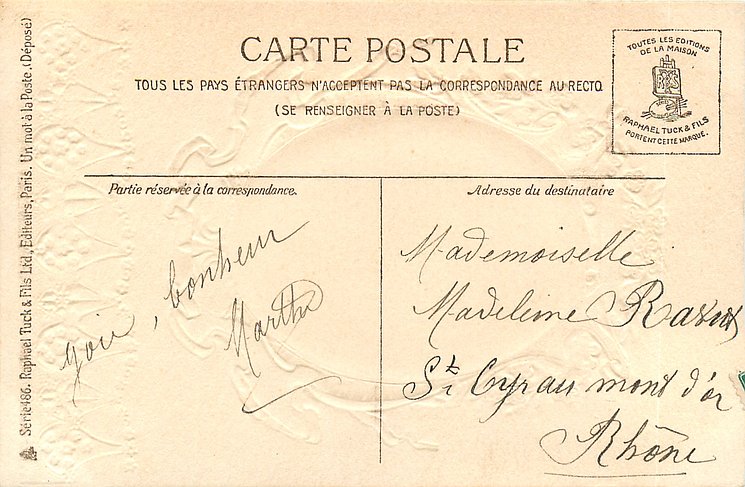 CARTE POSTALE
TOUS LES PAYS ÉTRANGERS N'ACCEPTENT PAS LA CORRESPONDANCE AU RECTO
(SE RENSEIGNER À LA POSTE)
TOUTES LES EDITIONS
DE LA MAISON
RAPHAEL TUCK & FILS
PORTENT CETTE MARQUE.
Série 486. Raphael Tuck & Fils Ltd, Editeurs, Paris. Un mot à la Poste. (Déposé)
Partie réservée à la correspondance.
joie, bonheur
Marthe
Adresse du destinataire
Mademoiselle
Madeleine
St Cyr au mont d'or
Rhône